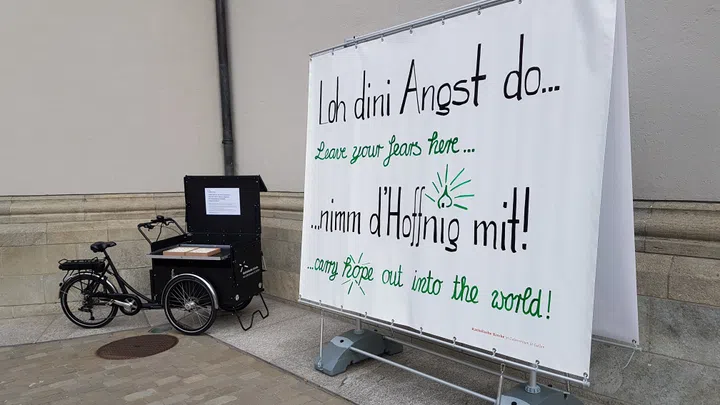 Loh dini Angst do...
Leave your fears here...
...nimm d'Hoffnig mit!
...carry hope out into the world!
Katholische Kirche